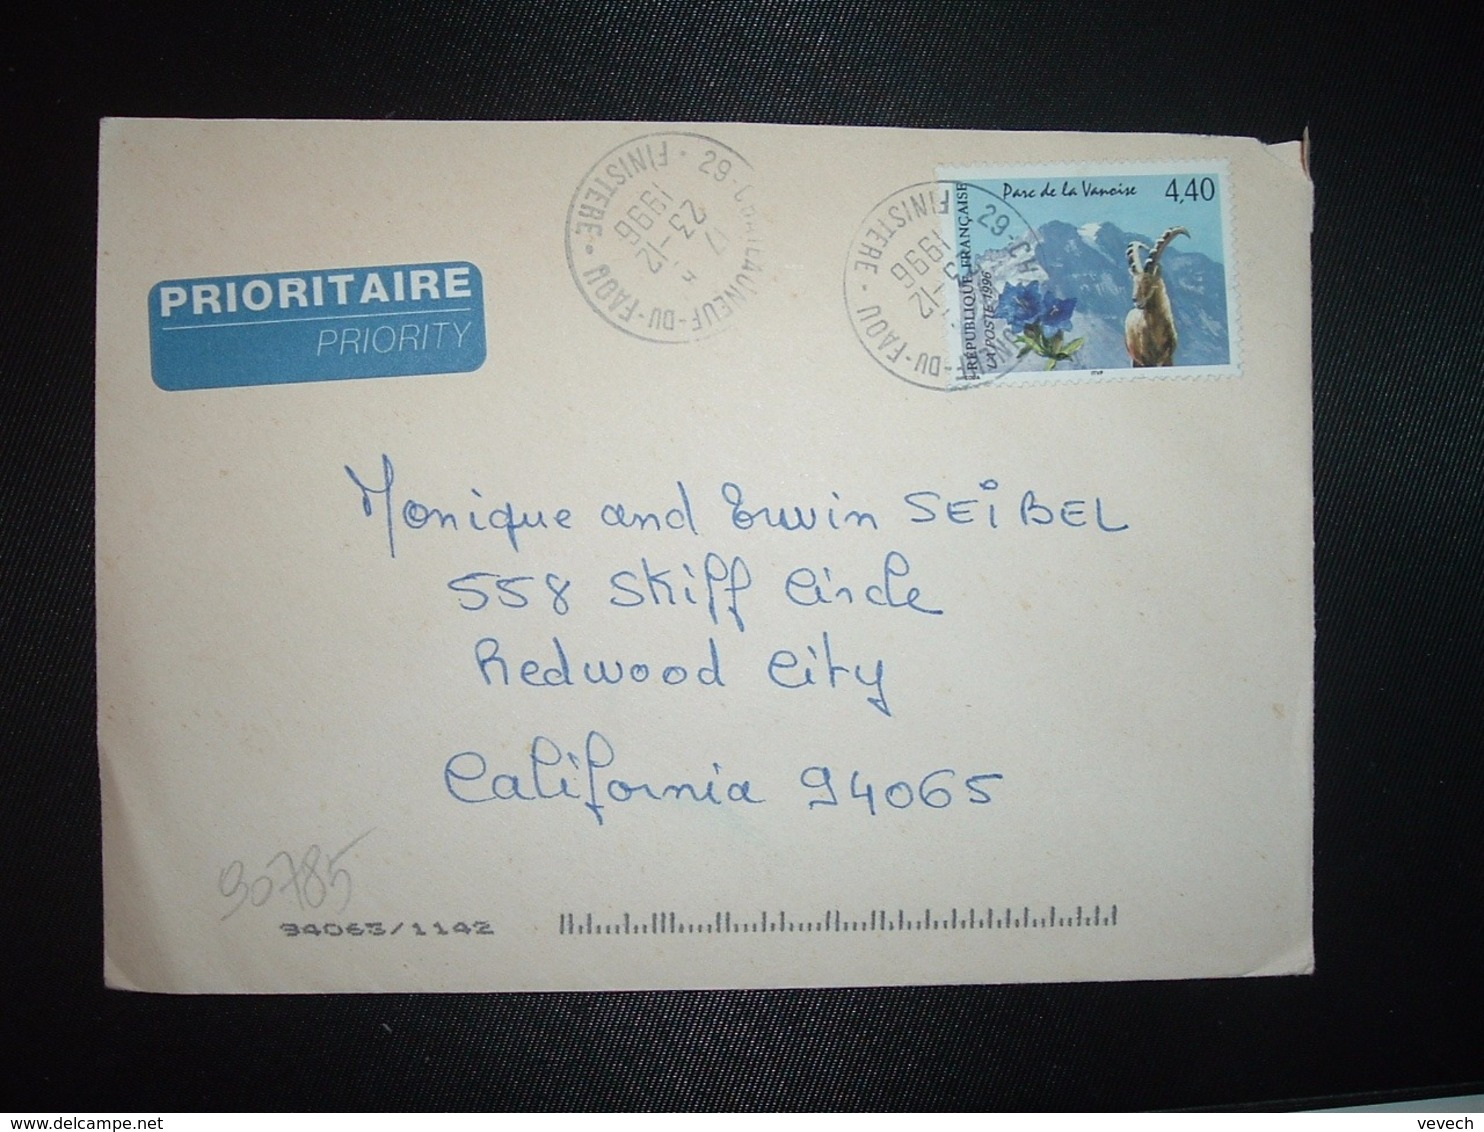 PRIORITAIRE
PRIORITY
29-CHATEAUNEUF-DU-FAOU
FINISTERE
17
23-12
1996
29-CH
-DU-FAOU
FINISTERE
-12
1996
Parc de la Vanoise
4,40
RÉPUBLIQUE FRANÇAISE
LA POSTE 1996
Monique and Erwin SEIBEL
558 Skiff Circle
Redwood City
California 94065
90785
94065/1142
delcampe.net
vevech